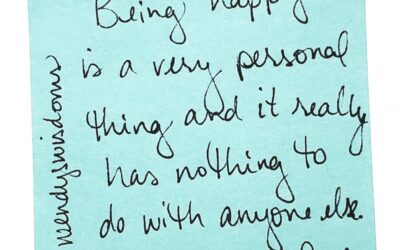 Being happy
is a very personal
thing and it really
has nothing to
do with anyone else.
wendyswisdoms